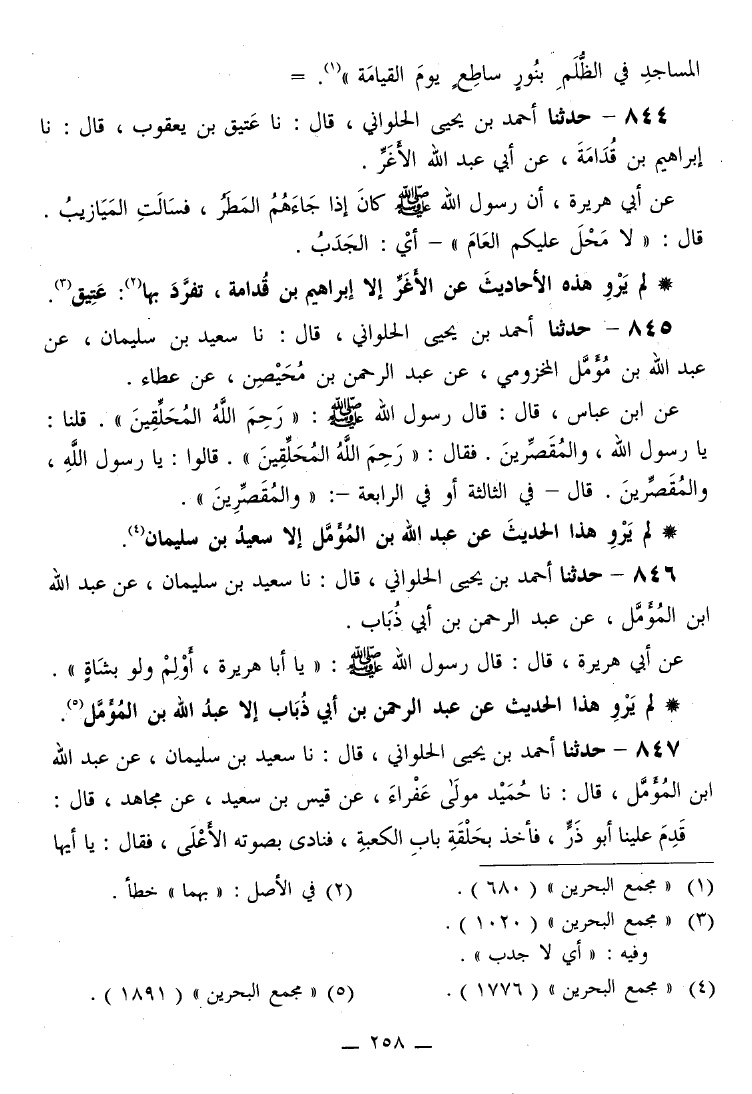 المساجدِ في الظُّلَمِ بنُورٍ ساطِعٍ يومَ القيامَة »(١). =
٨٤٤ – حدثنا أحمد بن يحيى الحلواني ، قال : نا عَتيق بن يعقوب ، قال : نا
إبراهيم بن قُدَامَةَ ، عن أبي عبد الله الأَغَرِّ .
عن أبي هريرة ، أن رسول الله ﷺ كانَ إذا جَاءَهُمُ المَطَرُ ، فسَالَتِ المَيَازيبُ .
قال : « لا مَحْلَ عليكم العَامَ » – أيْ : الجَدَبُ .
* لم يَرْوِ هذه الأحاديثَ عن الأَغَرِّ إلا إبراهيم بن قُدامة ، تفرَّدَ بها(٢): عَتِيق(٣).
٨٤٥ – حدثنا أحمد بن يحيى الحلواني ، قال : نا سعيد بن سليمان ، عن
عبد الله بن مُؤَمَّل المخزومي ، عن عبد الرحمن بن مُحَيْصِن ، عن عطاء .
عن ابن عباس ، قال : قال رسول الله ﷺ : « رَحِمَ اللَّهُ المُحَلِّقِينَ » . قلنا :
يا رسول الله ، والمُقَصِّرينَ . فقال : « رَحِمَ اللَّهُ المُحَلِّقِينَ » . قالوا : يا رسول اللَّهِ ،
والمُقَصِّرينَ . قال – في الثالثة أو في الرابعة –: « والمُقَصِّرِينَ » .
* لم يَرْوِ هذا الحديثَ عن عبد الله بن المُؤَمَّل إلا سعيدُ بن سليمان(٤).
٨٤٦ – حدثنا أحمد بن يحيى الحلواني ، قال : نا سعيد بن سليمان ، عن عبد الله
ابن المُؤَمَّل ، عن عبد الرحمن بن أبي ذُبَاب .
عن أبي هريرة ، قال : قال رسول الله ﷺ : « يا أبا هريرة ، أَوْلِمْ ولو بشَاةٍ » .
* لم يَرْوِ هذا الحديث عن عبد الرحمن بن أبي ذُبَاب إلا عبدُ الله بن المُؤَمَّل(٥).
٨٤٧ – حدثنا أحمد بن يحيى الحلواني ، قال : نا سعيد بن سليمان ، عن عبد الله
ابن المُؤَمَّل ، قال : نا حُمَيْد مولَى عَفْراءَ ، عن قيس بن سعيد ، عن مجاهد ، قال :
قَدِمَ علينا أبو ذَرٍّ ، فأخذ بحَلْقَةِ بابِ الكعبةِ ، فنادى بصوته الأَعْلَى ، فقال : يا أيها
(١) « مجمع البحرين » ( ٦٨٠ ) . (٢) في الأصل : « بهما » خطأ .
(٣) « مجمع البحرين » ( ١٠٢٠ ) .
وفيه : « أي لا جدب » .
(٤) « مجمع البحرين » ( ١٧٧٦ ) . (٥) « مجمع البحرين » ( ١٨٩١ ) .
— ٢٥٨ —